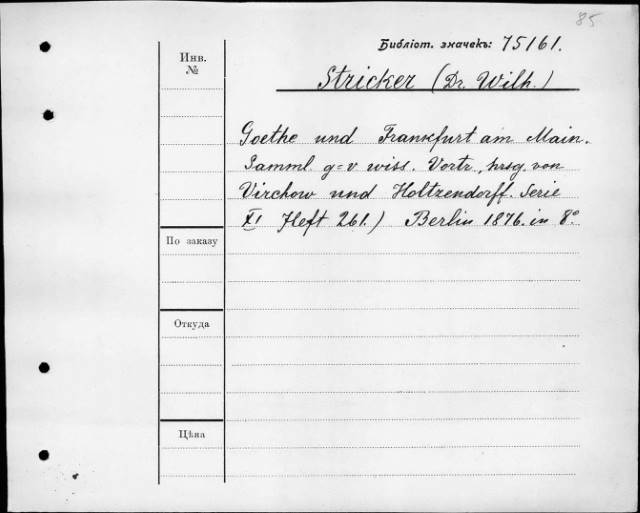 85
Библіот. значекъ: 75161.
Инв.
№
Stricker (Dr. Wilh.)
Goethe und Frankfurt am Main.
Samml. g=v wiss. Vortr., hrsg. von
Virchow und Holtzendorff. Serie
XI Heft 261.) Berlin 1876. in 8°
По заказу
Откуда
Цѣна